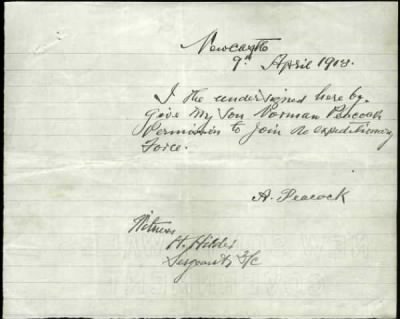 Newcastle
9th April 1918.
I the undersigned here by
give my son Norman Peacock
Permission to join the expeditionary
Force.
A. Peacock
Witness
H. Hilder
Sergeant